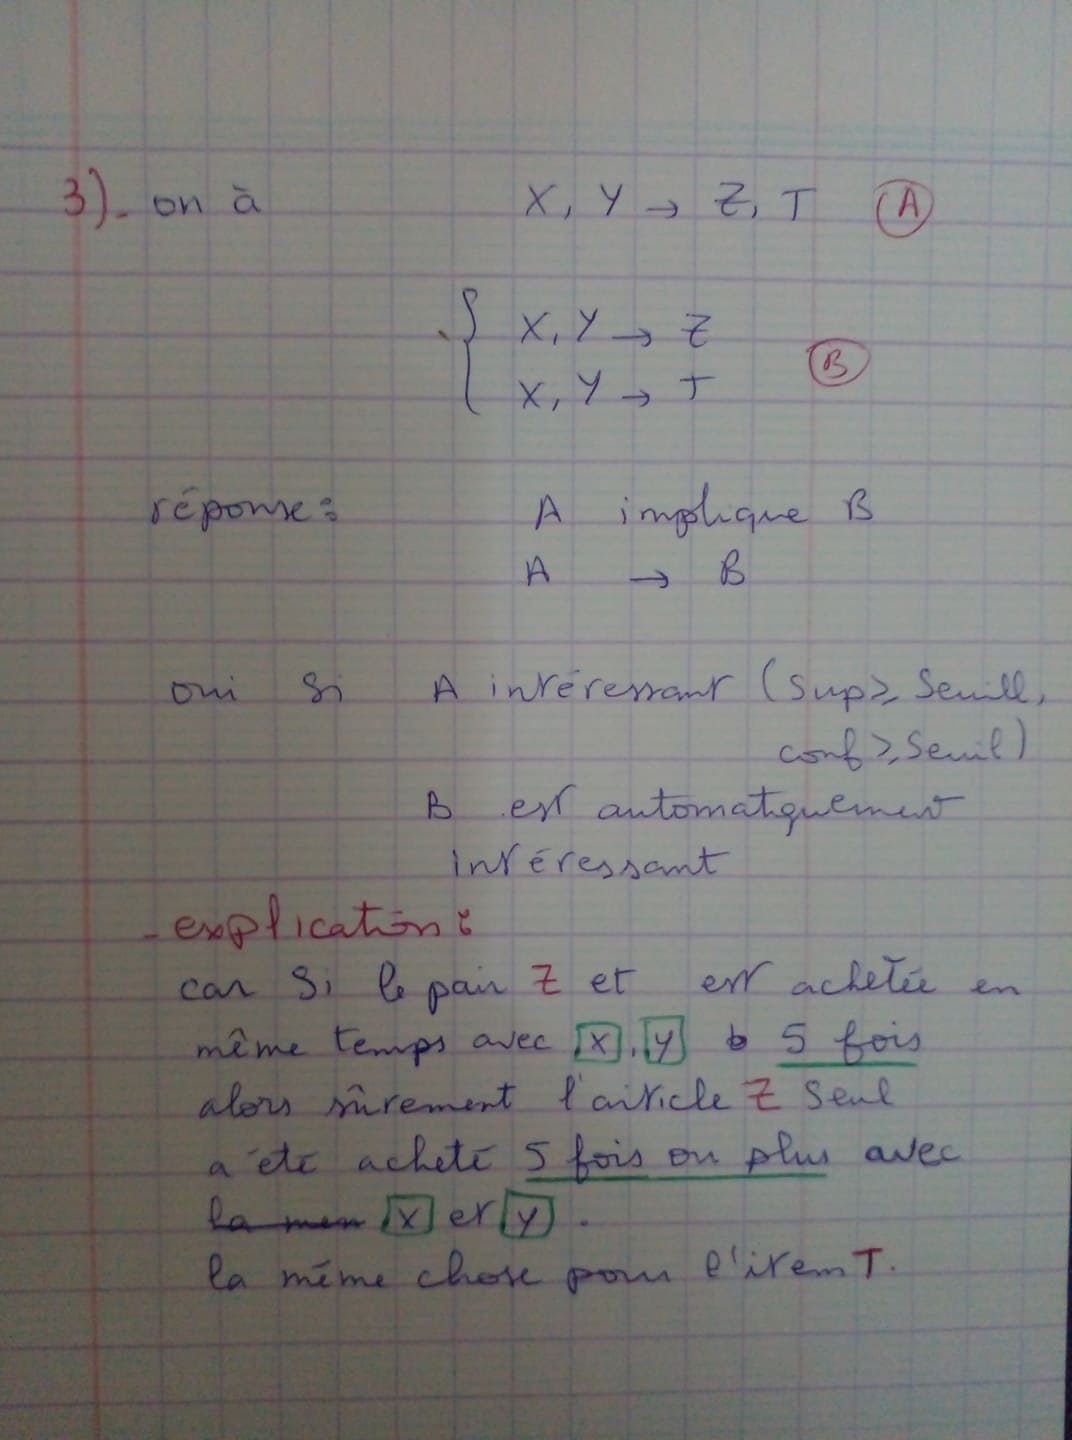 3)- on à X, Y → Z, T A
{ X, Y → Z
X, Y → T B
réponse: A implique B
A → B
oui si A intéressant (Sup ≥ Seuill,
conf ≥ Seuil)
B est automatiquement
intéressant
- explication:
car Si le pair Z et est achetée en
même temps avec X, Y 5 fois
alors sûrement l'article Z seul
a été acheté 5 fois ou plus avec
la mem X et Y.
la même chose pour l'item T.